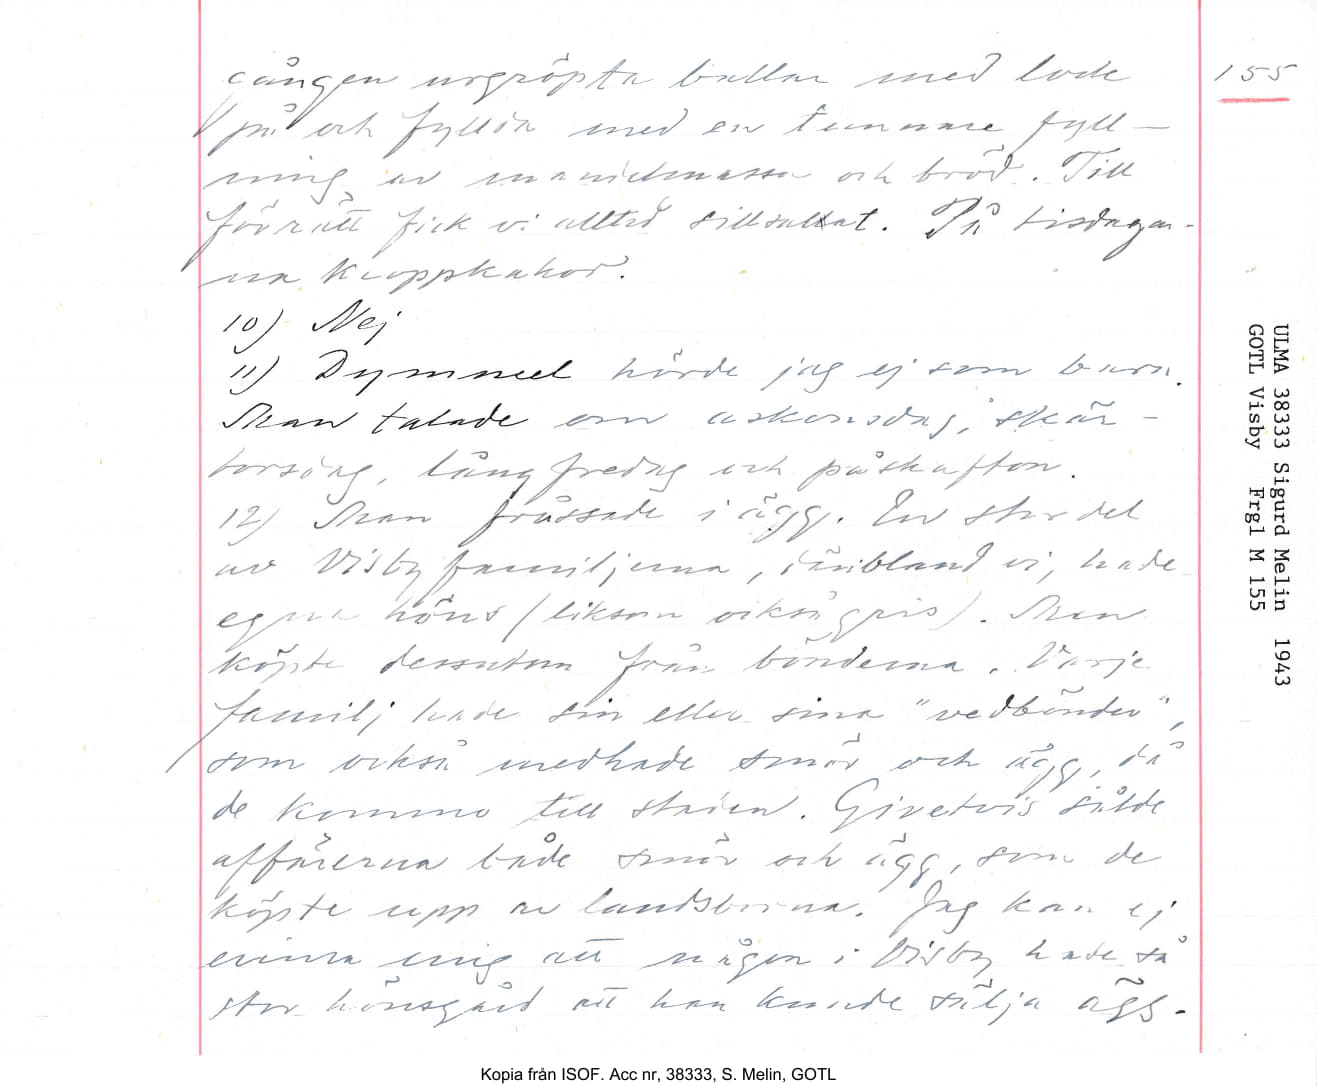 gången urgröpta bullar med lock
på och fyllda med en tunnare fyll-
ning av mandelmassa och bröd. Till
förrätt fick vi alltid sillsallat. På tisdagar-
na kroppkakor.
10) Nej
11) Dymmeel hörde jag ej som barn.
Man talade om askonsdag, skär-
torsdag, långfredag och påskafton.
12) Man frossade i ägg. En stor del
av Visbyfamiljerna, däribland vi, hade
egna höns (liksom också gris). Man
köpte dessutom från bönderna. Varje
familj hade sin eller sina "vedbönder",
som också medhade smör och ägg, då
de kommo till staden. Givetvis sålde
affärerna både smör och ägg, som de
köpte upp av landsborna. Jag kan ej
minna mig att någon i Visby hade så
stor hönsgård att han kunde sälja ägg.
155
ULMA 38333 Sigurd Melin 1943
GOTL Visby Frgl M 155
Kopia från ISOF. Acc nr, 38333, S. Melin, GOTL